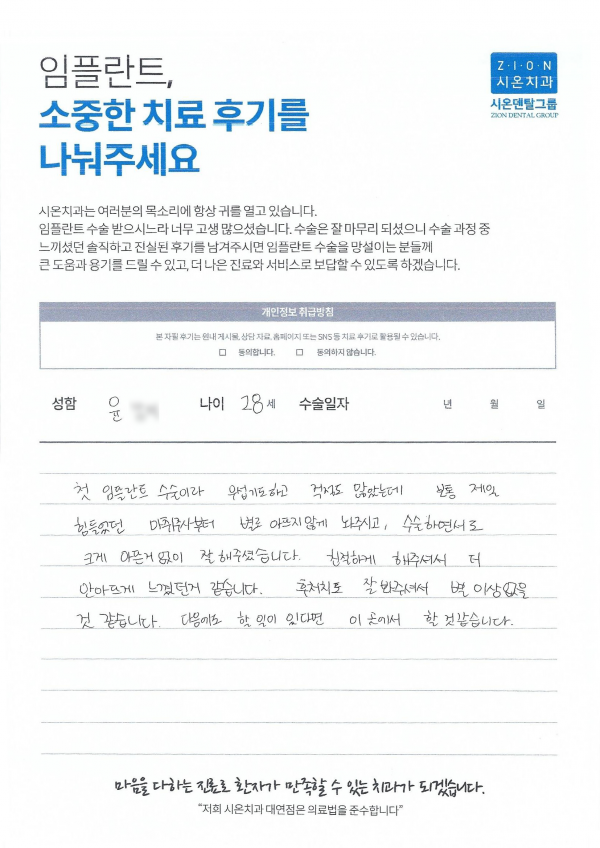 임플란트,
소중한 치료 후기를
나눠주세요
Z·I·O·N
시온치과
시온덴탈그룹
ZION DENTAL GROUP
시온치과는 여러분의 목소리에 항상 귀를 열고 있습니다.
임플란트 수술 받으시느라 너무 고생 많으셨습니다. 수술은 잘 마무리 되셨으니 수술 과정 중
느끼셨던 솔직하고 진실된 후기를 남겨주시면 임플란트 수술을 망설이는 분들께
큰 도움과 용기를 드릴 수 있고, 더 나은 진료와 서비스로 보답할 수 있도록 하겠습니다.
개인정보 취급방침
본 자필 후기는 원내 게시물, 상담 자료, 홈페이지 또는 SNS 등 치료 후기로 활용될 수 있습니다.
☐ 동의합니다. ☐ 동의하지 않습니다.
성함 윤 나이 28세 수술일자 년 월 일
첫 임플란트 수술이라 무섭기도하고 걱정도 많았는데 보통 제일
힘들었던 마취주사부터 별로 아프지않게 놔주시고, 수술하면서도
크게 아픈거 없이 잘 해주셨습니다. 친절하게 해주셔서 더
안아프게 느꼈던거 같습니다. 후처치도 잘 봐주셔서 별 이상없을
것 같습니다. 다음에도 할 일이 있다면 이 곳에서 할 것같습니다.
마음을 다하는 진료로 환자가 만족할 수 있는 치과가 되겠습니다.
"저희 시온치과 대연점은 의료법을 준수합니다"